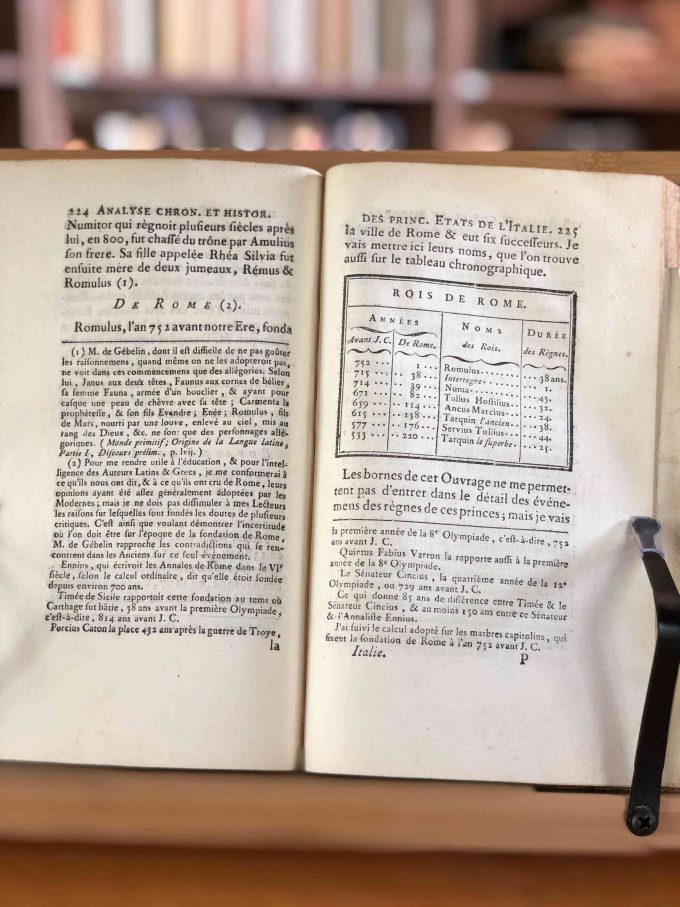 224 ANALYSE CHRON. ET HISTOR.
Numitor qui règnoit plusieurs siècles après
lui, en 800, fut chassé du trône par Amulius
son frere. Sa fille appelée Rhéa Silvia fut
ensuite mère de deux jumeaux, Rémus &
Romulus (1).
DE ROME (2).
Romulus, l'an 752 avant notre Ere, fonda
(1) M. de Gébelin, dont il est difficile de ne pas goûter
les raisonnemens, quand même on ne les adopteroit pas,
ne voit dans ces commencemens que des allégories. Selon
lui, Janus aux deux têtes, Faunus aux cornes de bélier,
sa femme Fauna, armée d'un bouclier, & ayant pour
casque une peau de chèvre avec sa tête; Carmenta la
prophétesse, & son fils Evandre; Enée; Romulus, fils
de Mars, nourri par une louve, enlevé au ciel, mis au
rang des Dieux, &c. ne sont que des personnages allé-
goriques. (Monde primitif; Origine de la Langue latine,
Partie I, Discours prélim., p. lvij.)
(2) Pour me rendre utile à l'éducation, & pour l'intel-
ligence des Auteurs Latins & Grecs, je me conformerai à
ce qu'ils nous ont dit, & à ce qu'ils ont cru de Rome, leurs
opinions ayant été assez généralement adoptées par les
Modernes; mais je ne dois pas dissimuler à mes Lecteurs
les raisons sur lesquelles sont fondés les doutes de plusieurs
critiques. C'est ainsi que voulant démontrer l'incertitude
où l'on doit être sur l'époque de la fondation de Rome,
M. de Gébelin rapproche les contradictions qui se ren-
contrent dans les Anciens sur ce seul événement.
Ennius, qui écrivoit les Annales de Rome dans le VIe
siècle, selon le calcul ordinaire, dit qu'elle étoit fondée
depuis environ 700 ans.
Timée de Sicile rapportoit cette fondation au tems où
Carthage fut bâtie, 38 ans avant la première Olympiade,
c'est-à-dire, 814 ans avant J. C.
Porcius Caton la place 432 ans après la guerre de Troye,
la
DES PRINC. ETATS DE L'ITALIE. 225
la ville de Rome & eut six successeurs. Je
vais mettre ici leurs noms, que l'on trouve
aussi sur le tableau chronographique.
ROIS DE ROME.
ANNÉES NOMS DURÉE
Avant J. C. De Rome. des Rois. des Règnes.
752 ... 1 ... Romulus ... 38 ans.
715 ... 38 ... Interregne ...
714 ... 39 ... Numa ... 43.
671 ... 82 ... Tullus Hostilius ... 32.
639 ... 114 ... Ancus Marcius ... 24.
615 ... 138 ... Tarquin l'ancien ... 38.
577 ... 176 ... Servius Tullius ... 44.
533 ... 220 ... Tarquin le superbe ... 25.
Les bornes de cet Ouvrage ne me permet-
tent pas d'entrer dans le détail des événe-
mens des règnes de ces princes; mais je vais
la première année de la 8e Olympiade, c'est-à-dire, 752
ans avant J. C.
Quintus Fabius Varron la rapporte aussi à la première
année de la 8e Olympiade.
Le Sénateur Cincius, la quatrième année de la 12e
Olympiade, ou 729 ans avant J. C.
Ce qui donne 85 ans de différence entre Timée & le
Sénateur Cincius, & au moins 150 ans entre ce Sénateur
& l'Annaliste Ennius.
J'ai suivi le calcul adopté sur les marbres capitolins, qui
fixent la fondation de Rome à l'an 752 avant J. C.
Italie. P